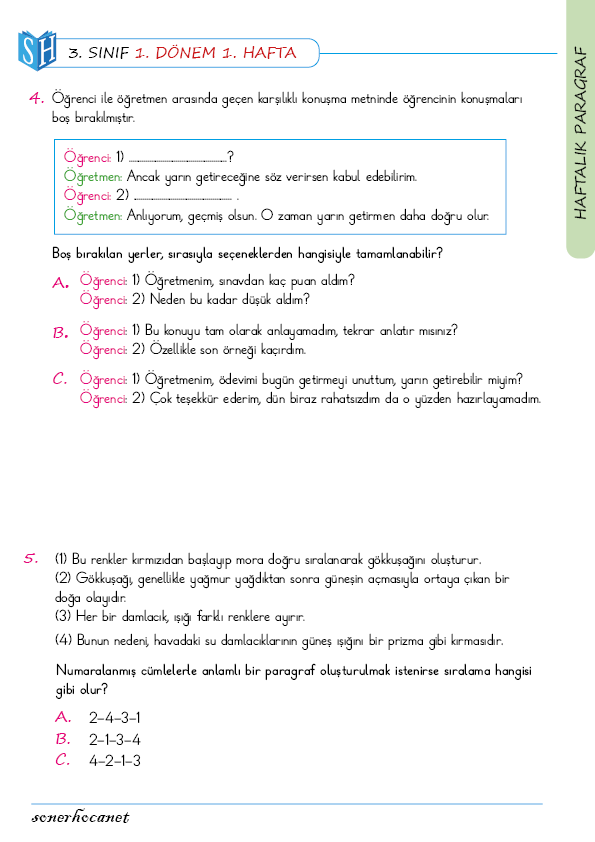 SH
3. SINIF 1. DÖNEM 1. HAFTA
HAFTALIK PARAGRAF
4. Öğrenci ile öğretmen arasında geçen karşılıklı konuşma metninde öğrencinin konuşmaları
boş bırakılmıştır.
Öğrenci: 1) ........................................?
Öğretmen: Ancak yarın getireceğine söz verirsen kabul edebilirim.
Öğrenci: 2) ........................................ .
Öğretmen: Anlıyorum, geçmiş olsun. O zaman yarın getirmen daha doğru olur.
Boş bırakılan yerler, sırasıyla seçeneklerden hangisiyle tamamlanabilir?
A. Öğrenci: 1) Öğretmenim, sınavdan kaç puan aldım?
Öğrenci: 2) Neden bu kadar düşük aldım?
B. Öğrenci: 1) Bu konuyu tam olarak anlayamadım, tekrar anlatır mısınız?
Öğrenci: 2) Özellikle son örneği kaçırdım.
C. Öğrenci: 1) Öğretmenim, ödevimi bugün getirmeyi unuttum, yarın getirebilir miyim?
Öğrenci: 2) Çok teşekkür ederim, dün biraz rahatsızdım da o yüzden hazırlayamadım.
5. (1) Bu renkler kırmızıdan başlayıp mora doğru sıralanarak gökkuşağını oluşturur.
(2) Gökkuşağı, genellikle yağmur yağdıktan sonra güneşin açmasıyla ortaya çıkan bir
doğa olayıdır.
(3) Her bir damlacık, ışığı farklı renklere ayırır.
(4) Bunun nedeni, havadaki su damlacıklarının güneş ışığını bir prizma gibi kırmasıdır.
Numaralanmış cümlelerle anlamlı bir paragraf oluşturulmak istenirse sıralama hangisi
gibi olur?
A. 2-4-3-1
B. 2-1-3-4
C. 4-2-1-3
sonerhocanet